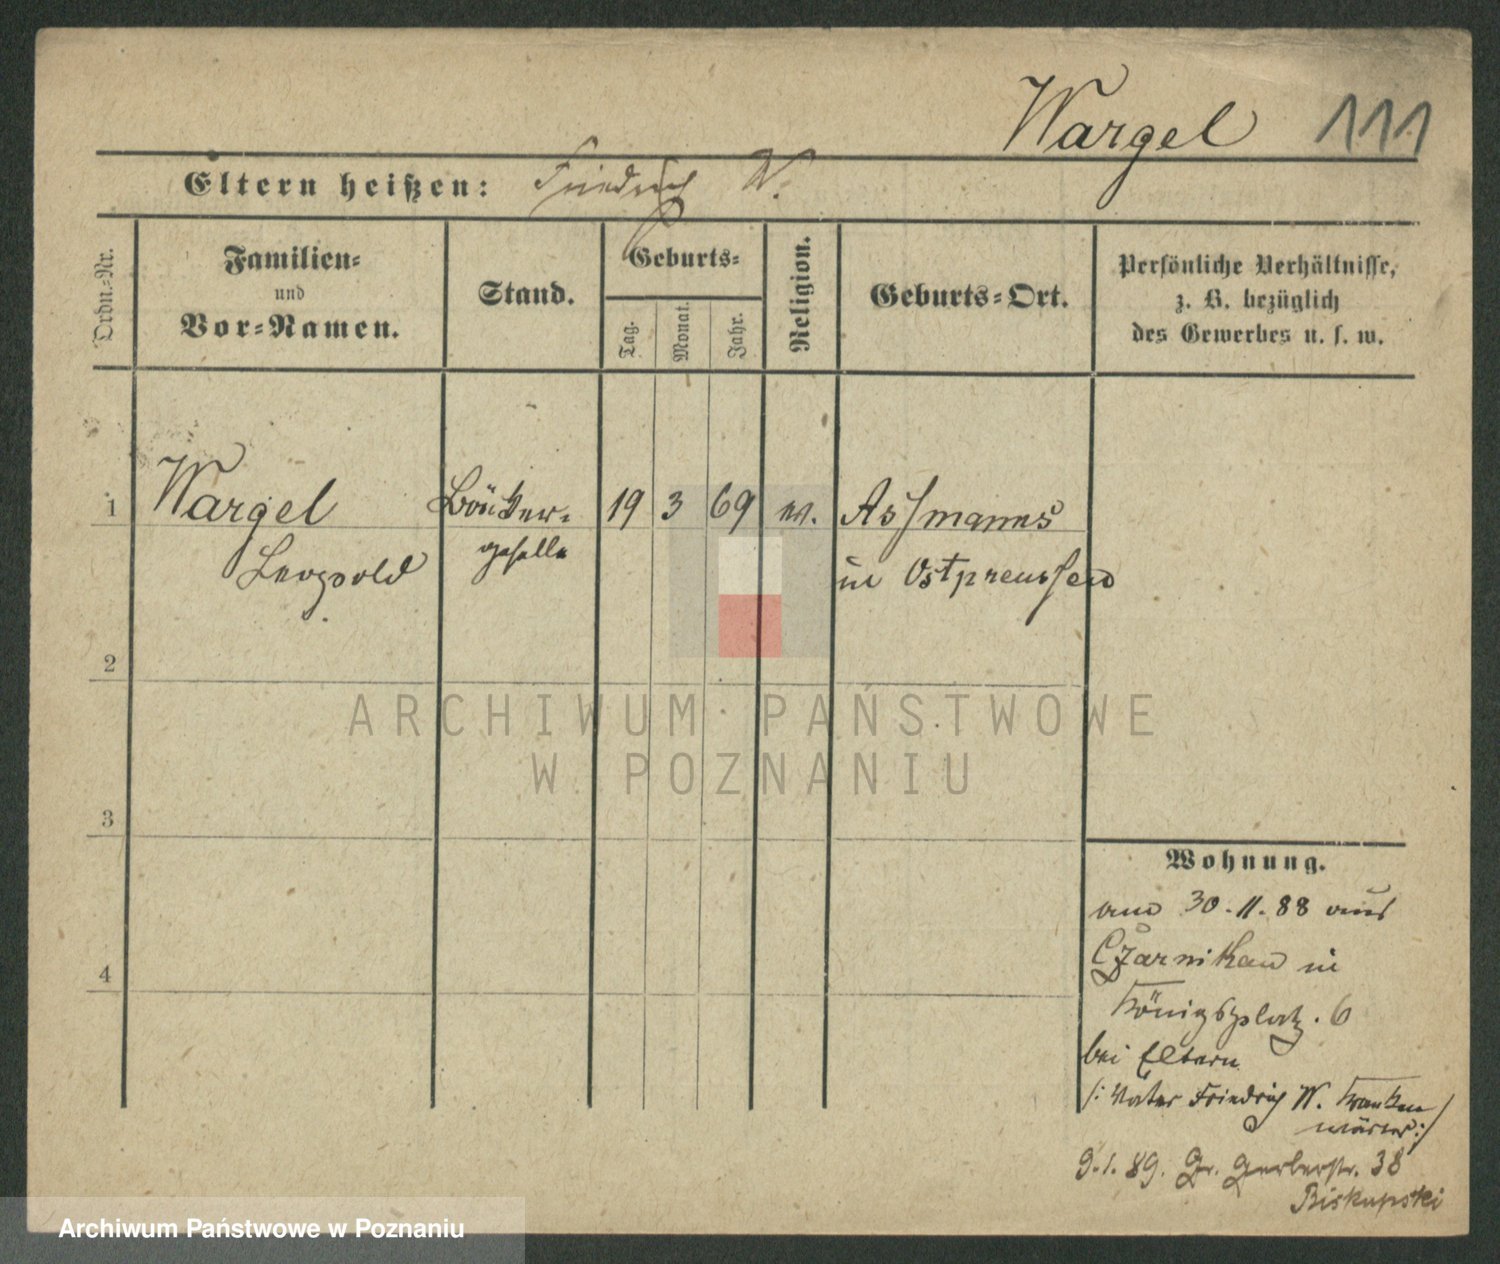 Wargel 111
Eltern heißen: Friedrich W.
Ordn.-Nr.
Familien-
und
Vor-Namen.
Stand.
Geburts-
Tag.
Monat.
Jahr.
Religion.
Geburts-Ort.
Persönliche Verhältnisse,
z. B. bezüglich
des Gewerbes u. s. w.
1 Wargel Böttker- 19 3 69 ev. Assmanns
Leopold geselle in Ostpreussen
2
3
4
ARCHIWUM PAŃSTWOWE
W POZNANIU
Wohnung.
am 30.11.88 aus
Czarnikau in
Königsplatz. 6
bei Eltern
/: Vater Friedrich W. Kranken
wärter :/
9.1.89. Gr. Gerberstr. 38
Biskupski
Archiwum Państwowe w Poznaniu